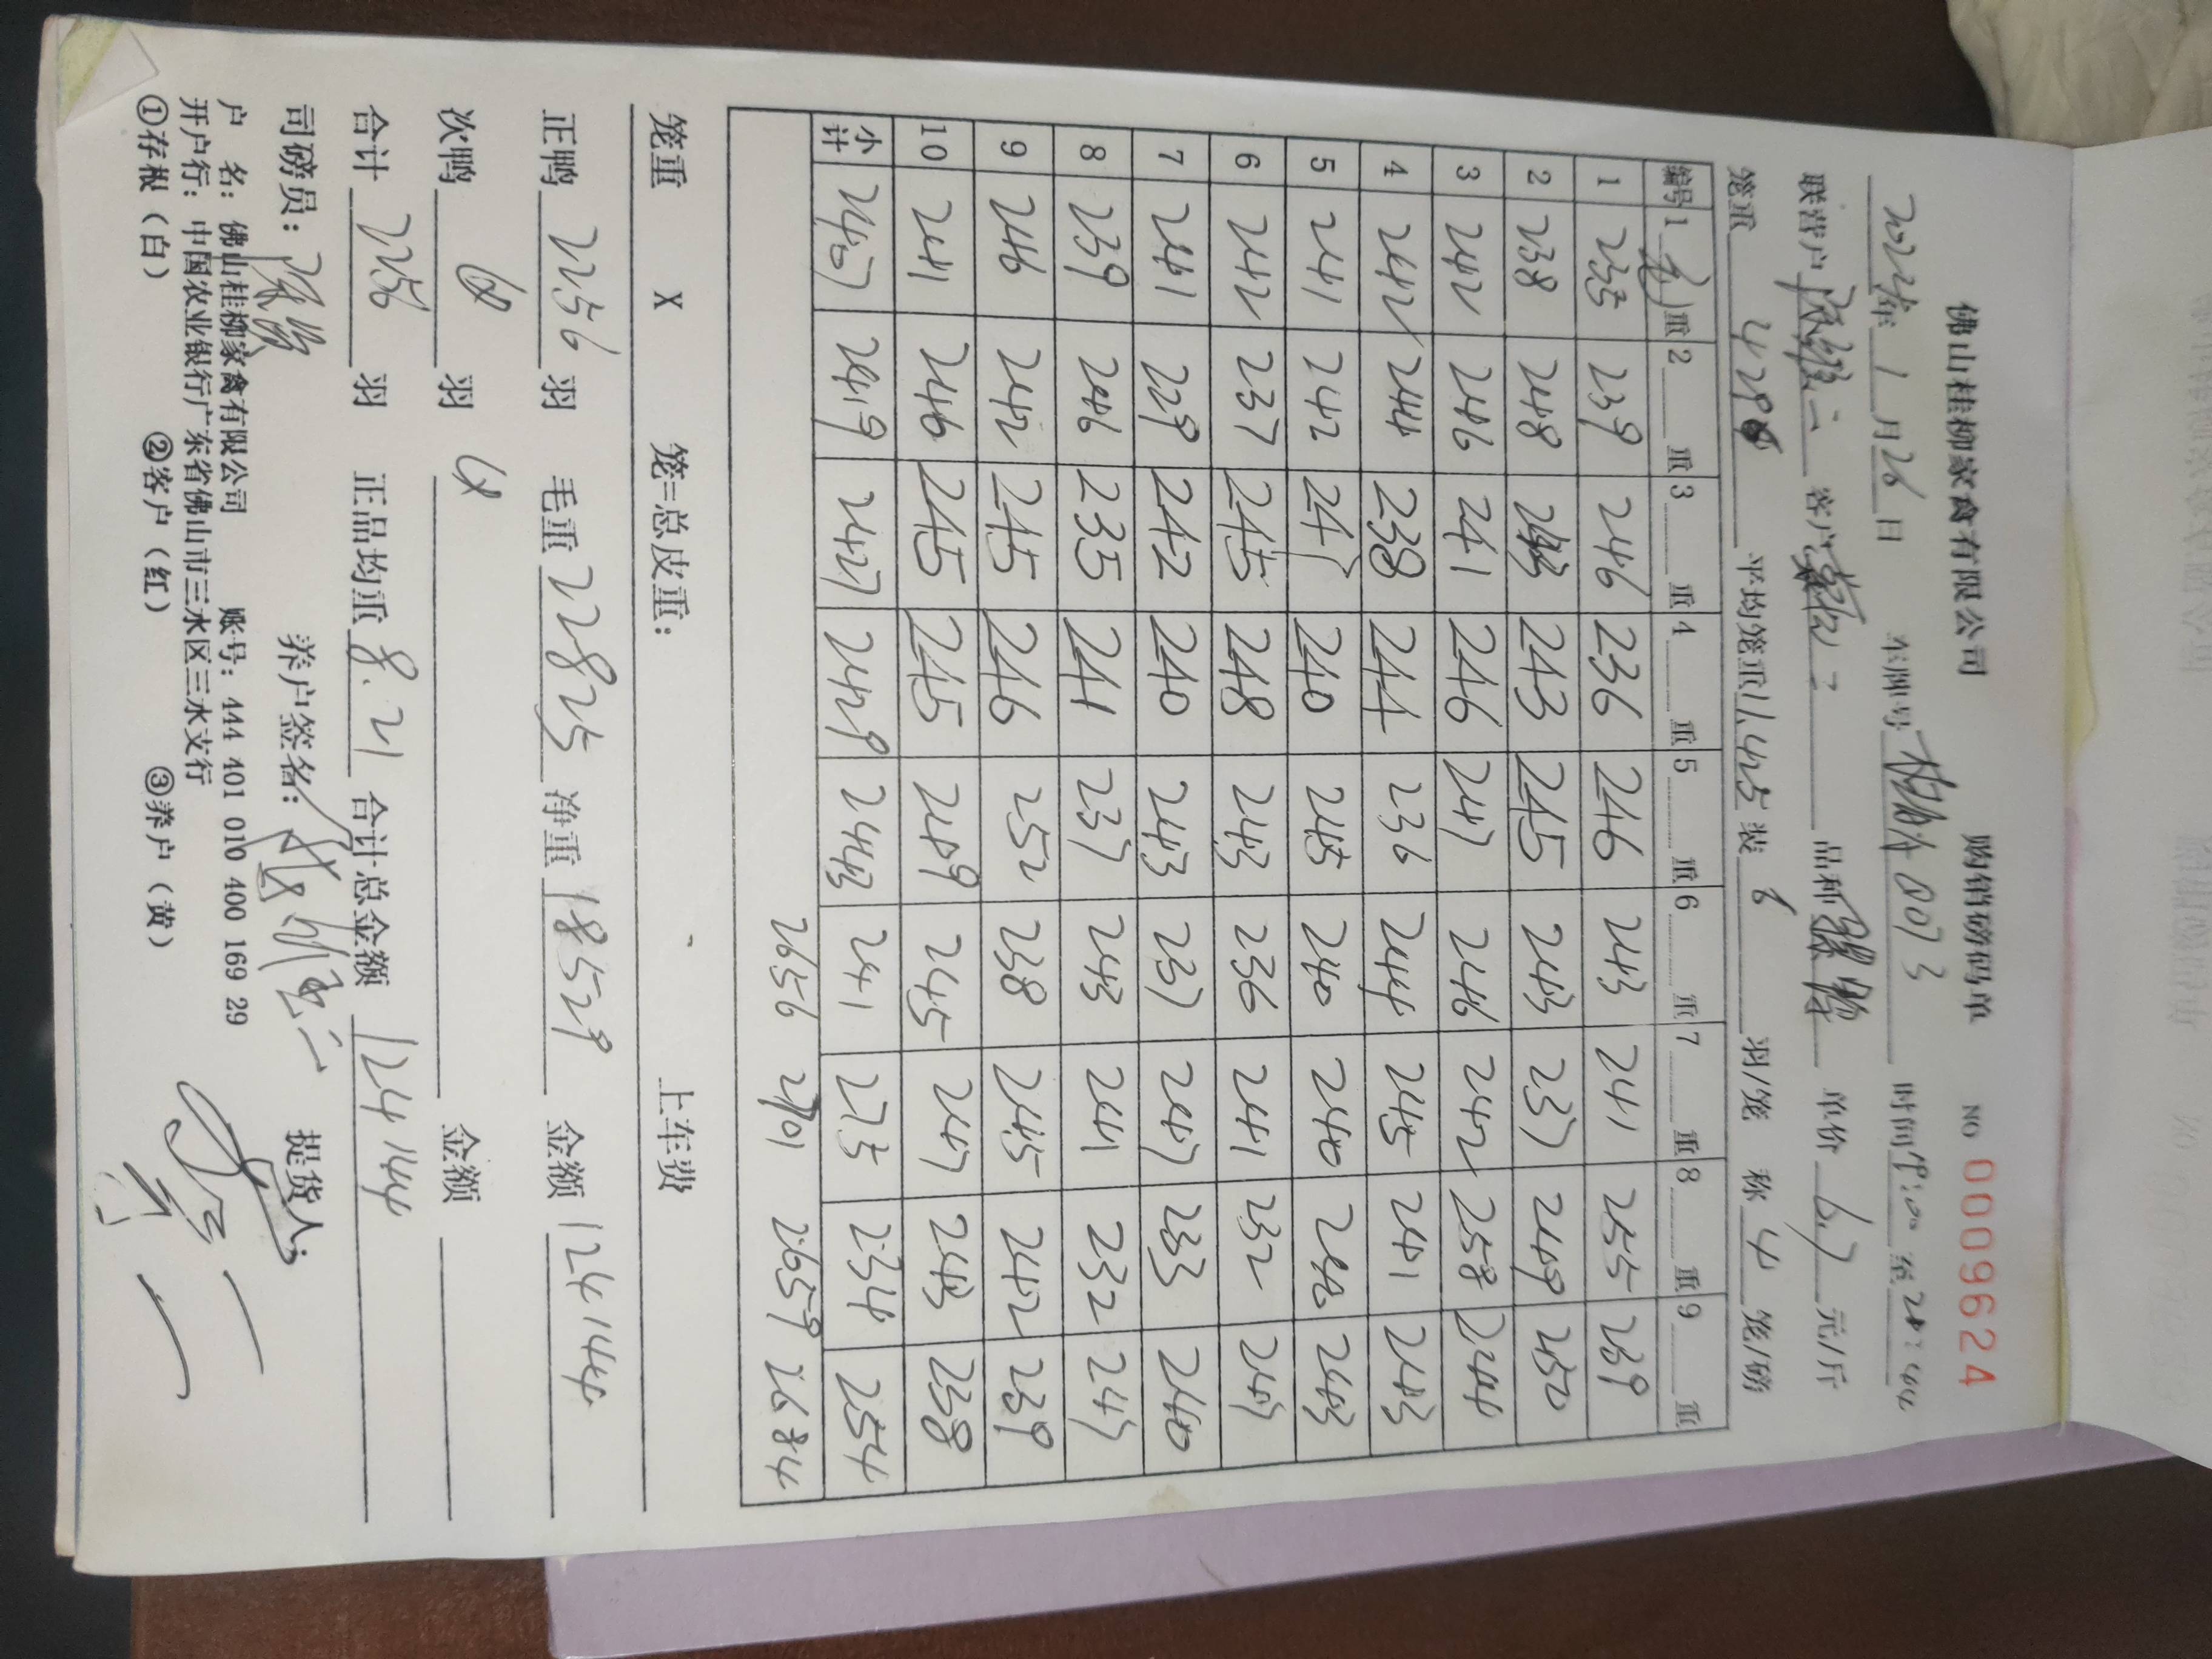 佛山桂柳家禽有限公司 购销磅码单 NO 0009624
2022年 1 月 26 日 车牌号 0073 时间 至
联营户 客户 品种 单价 6.7 元/斤
笼重 4298 平均笼重 11.425 装 6 羽/笼 称 4 笼/磅
编号 1 毛 重 2 重 3 重 4 重 5 重 6 重 7 重 8 重 9 重
1 235 239 246 236 246 243 241 255 239
2 238 248 243 243 245 243 237 249 250
3 242 246 241 246 247 246 242 258 244
4 242 244 238 244 236 244 245 241 243
5 241 242 245 240 245 240 240 243
6 242 237 245 248 243 236 241 232 247
7 241 229 242 240 243 237 247 233 240
8 239 246 235 241 237 243 241 232 247
9 246 242 245 246 252 238 245 242 239
10 241 246 245 245 249 245 247 243 238
小计 2407 2419 2427 2429 2443 241 275 234 254
2656 2701 2659 2684
笼重 X 笼=总皮重: 上车费
正鸭 2256 羽 毛重 22825 净重 18529 金额 124144
次鸭 羽 金额
合计 2256 羽 正品均重 8.21 合计总金额 124144
司磅员: 养户签名: 提货人:
户 名: 佛山桂柳家禽有限公司 账号: 444 401 010 400 169 29
开户行: 中国农业银行广东省佛山市三水区三水支行
①存根(白) ②客户(红) ③养户(黄)